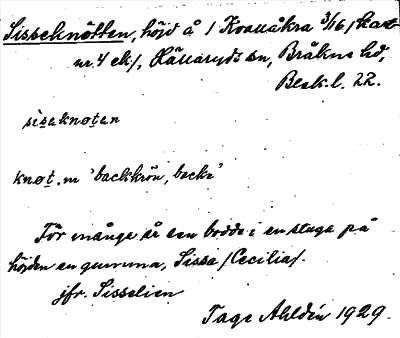 Sisseknötten, höjd å 1 Kvallåkra 3/16 /kart
nr. 4 ek/, Hällaryds sn, Bräkne hd,
Blek. l. 22.
sisəknøtən
knøt, m 'backkrön, backe'
För många år sen bodde i en stuga på
höjden en gumma, Sissa /Cecilia/.
jfr. Sisselien
Tage Ahldén 1929.